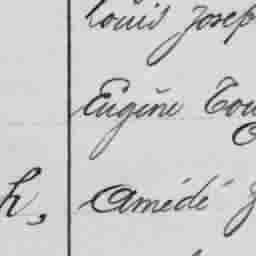 Louis Josep
Eugène Tou
h, Amédé J